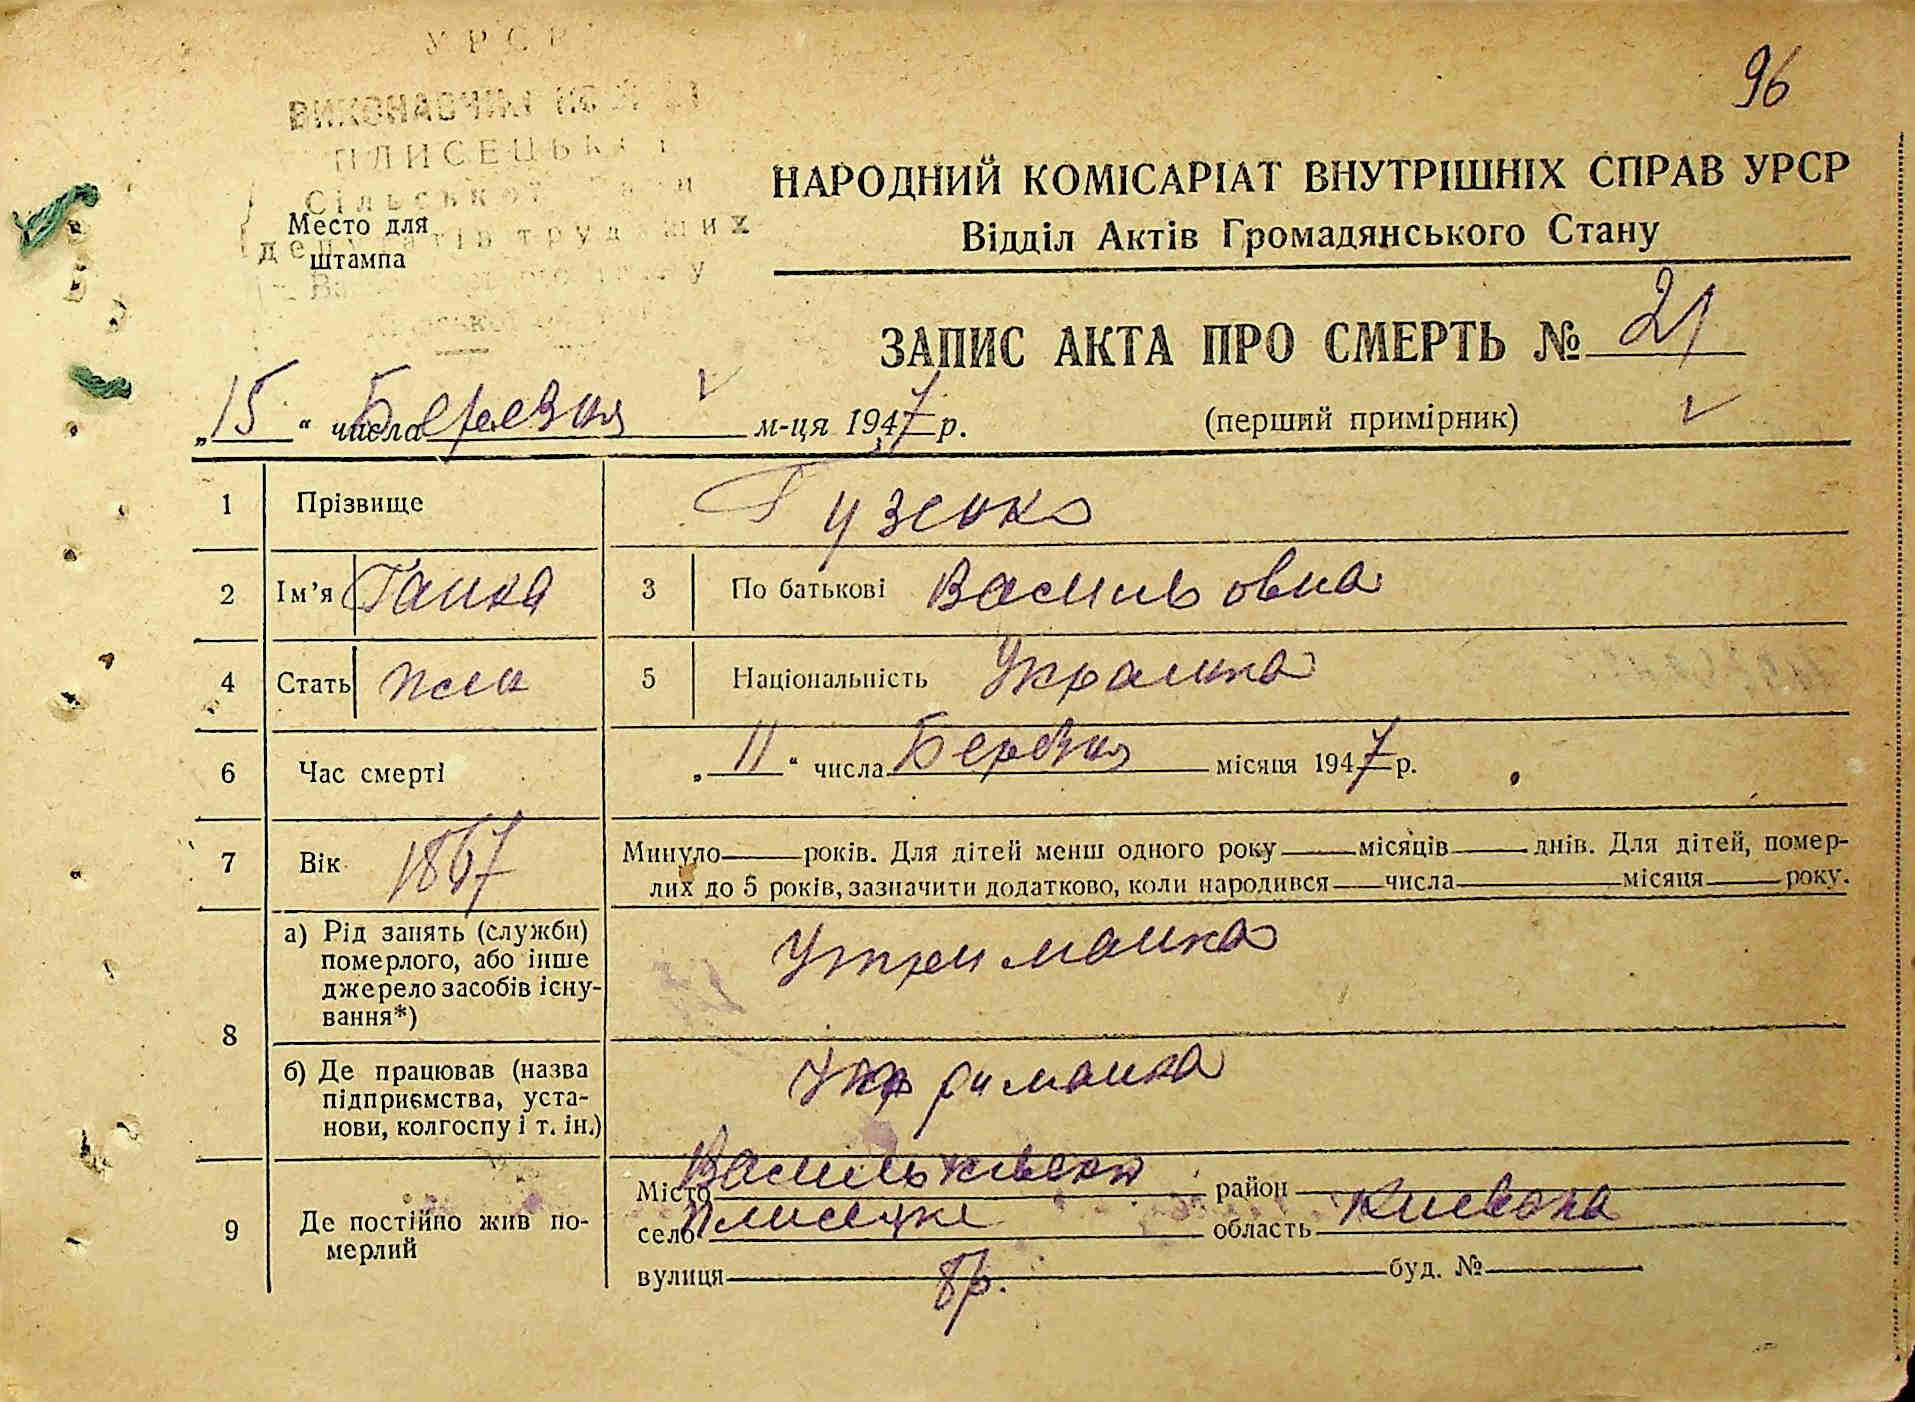 УРСР
96
ПЛИСЕЦЬКА
Сільської
депутатів трудящих
Место для
штампа
НАРОДНИЙ КОМІСАРІАТ ВНУТРІШНІХ СПРАВ УРСР
Відділ Актів Громадянського Стану
ЗАПИС АКТА ПРО СМЕРТЬ № 21
„15“ числа Березня м-ця 1947 р.
(перший примірник)
1 Прізвище Гузенко
2 Ім’я Ганна 3 По батькові Васильовна
4 Стать жен 5 Національність Украинка
6 Час смерті „11“ числа Березня місяця 1947 р.
7 Вік 1867 Минуло років. Для дітей менш одного року місяців днів. Для дітей, помер-
лих до 5 років, зазначити додатково, коли народився числа місяця року.
8 а) Рід занять (служби)
померлого, або інше
джерело засобів існу-
вання*)
Утриманка
б) Де працював (назва
підприємства, уста-
нови, колгоспу і т. ін.)
Утриманка
9 Де постійно жив по-
мерлий
Місто Васильківськ район
село Плисецке область Киевска
вулиця буд. №